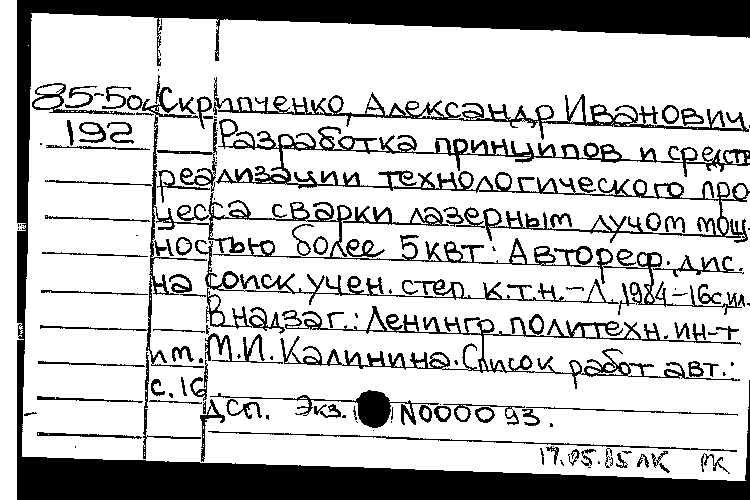 85-5ок Скрипченко, Александр Иванович.
192 Разработка принципов и средств
реализации технологического про-
цесса сварки лазерным лучом мощ-
ностью более 5 квт: Автореф. дис.
на соиск. учен. степ. к.т.н.-Л., 1984.-16с, ил.
В надзаг.: Ленингр. политехн. ин-т
им. М.И. Калинина. Список работ авт.:
с. 16
ДСП. Экз. N000093.
17.05.85 ЛК РК